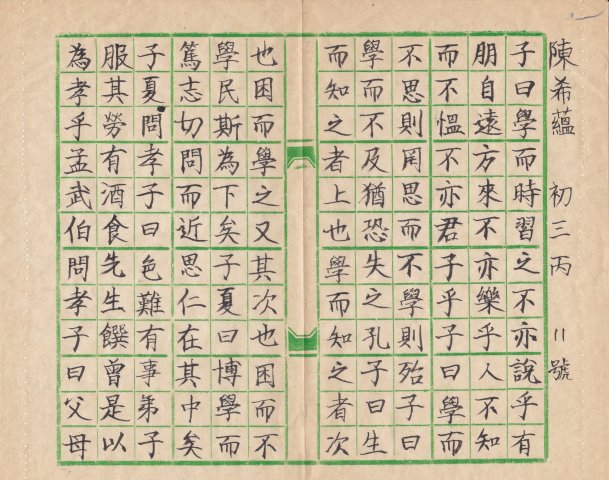 陳希蘊 初三丙 11號
子曰學而時習之不亦說乎有
朋自遠方來不亦樂乎人不知
而不慍不亦君子乎子曰學而
不思則罔思而不學則殆子曰
學而不及猶恐失之孔子曰生
而知之者上也學而知之者次
也困而學之又其次也困而不
學民斯為下矣子夏曰博學而
篤志切問而近思仁在其中矣
子夏問孝子曰色難有事弟子
服其勞有酒食先生饌曾是以
為孝乎孟武伯問孝子曰父母